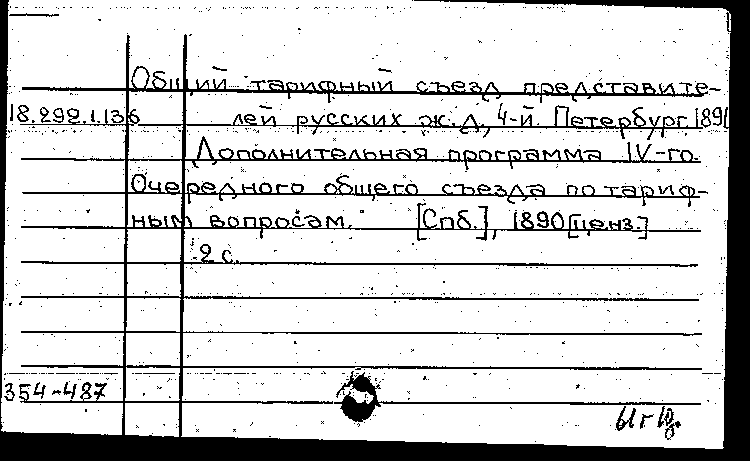 Общий тарифный съезд представите-
18.292.1.136 лей русских ж.д., 4-й. Петербург. 1890
Дополнительная программа IV-го.
Очередного общего съезда по тариф-
ным вопросам. [Спб.], 1890 [ценз.]
2 с.
354-487